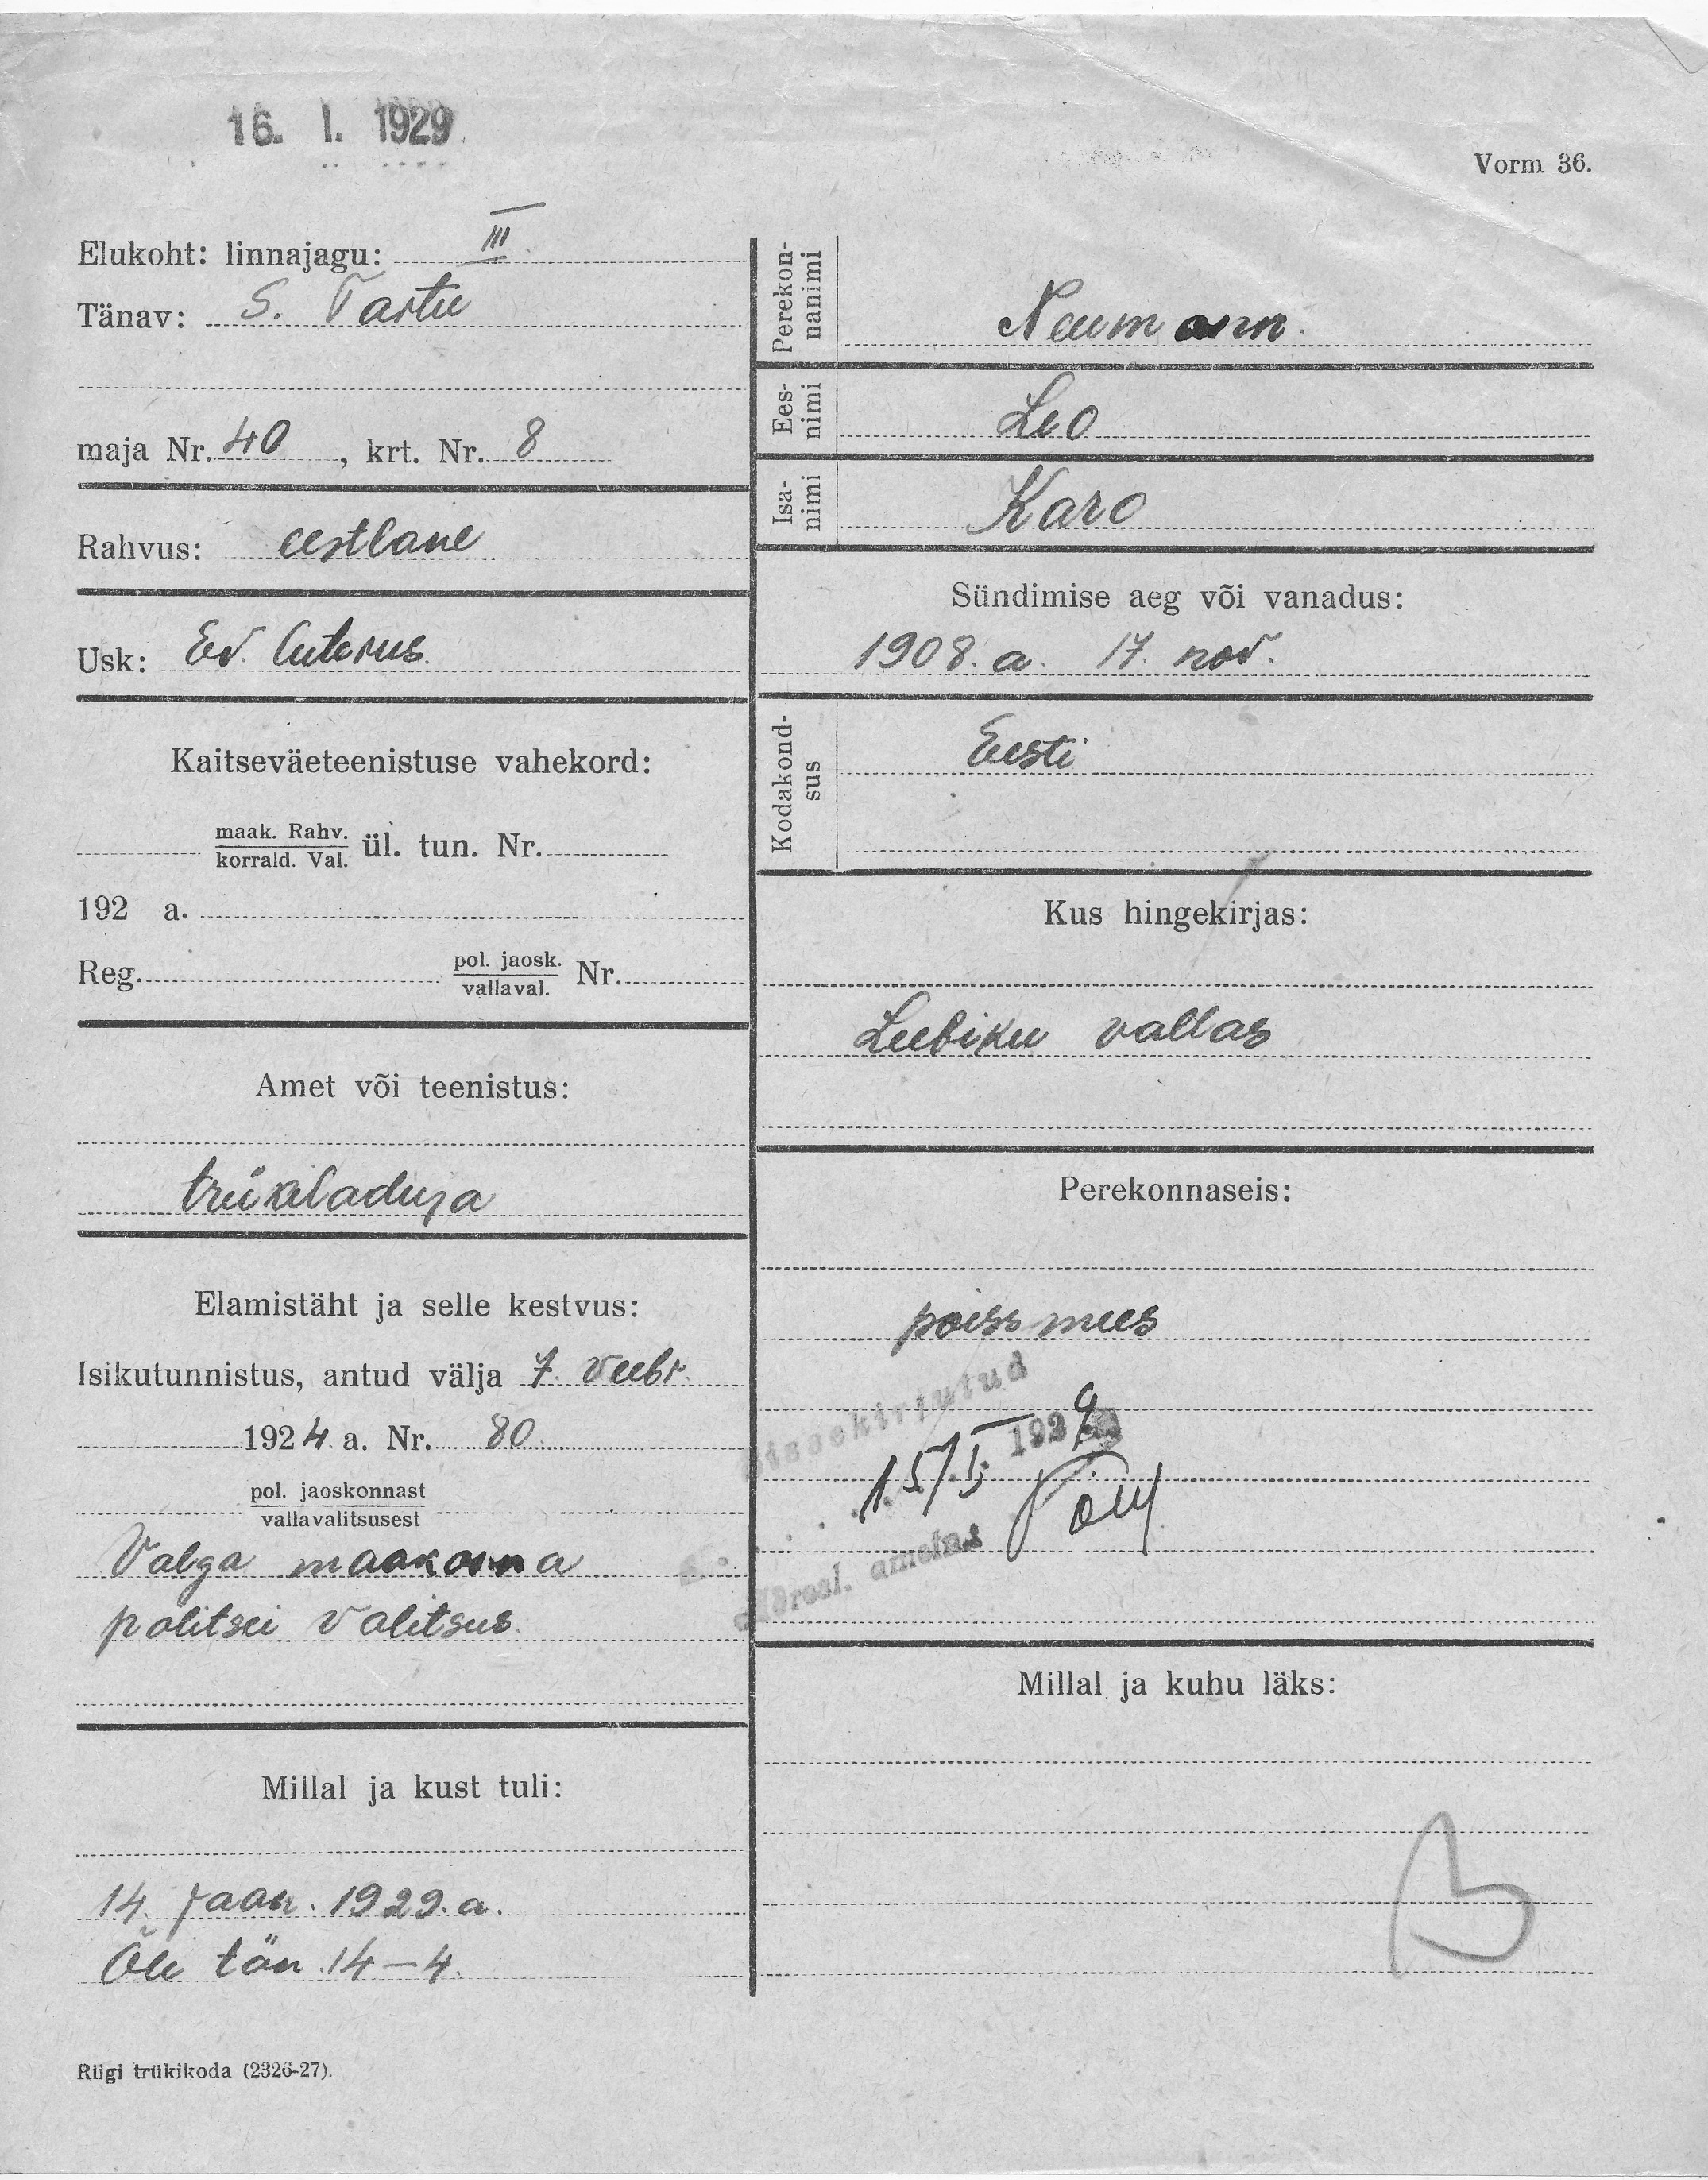 16. I. 1929
Vorm 36.
Elukoht: linnajagu: III
Tänav: S. Tartu
maja Nr. 40, krt. Nr. 8
Rahvus: eestlane
Usk: Ev. luterus
Kaitseväeteenistuse vahekord:
maak. Rahv.
korrald. Val. ül. tun. Nr.
192 a.
Reg. pol. jaosk.
vallaval. Nr.
Amet või teenistus:
trükiladuja
Elamistäht ja selle kestvus:
Isikutunnistus, antud välja 7. veebr.
1924 a. Nr. 80
pol. jaoskonnast
vallavalitsusest
Valga maakonna
politsei valitsus
Millal ja kust tuli:
14. jaan. 1929. a.
Õle tän 14-4.
Riigi trükikoda (2326-27).
Perekon-
nanimi
Neumann.
Ees-
nimi
Leo
Isa-
nimi
Karo
Sündimise aeg või vanadus:
1908. a. 17. nov.
Kodakond-
sus
Eesti
Kus hingekirjas:
Leebiku vallas
Perekonnaseis:
poissmees
Sissekirjutud
15/I 1929
Millal ja kuhu läks:
B